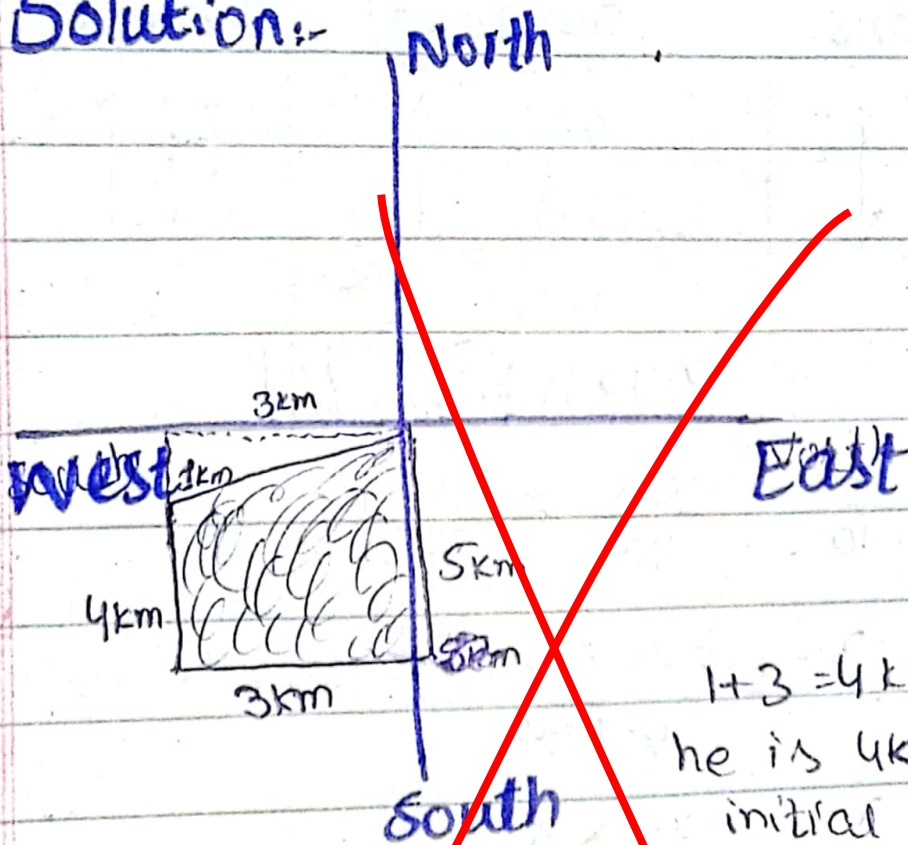 Solution:-
North
3km
West
1km
East
5km
4km
3km
1+3=4k
he is 4k
initial
South